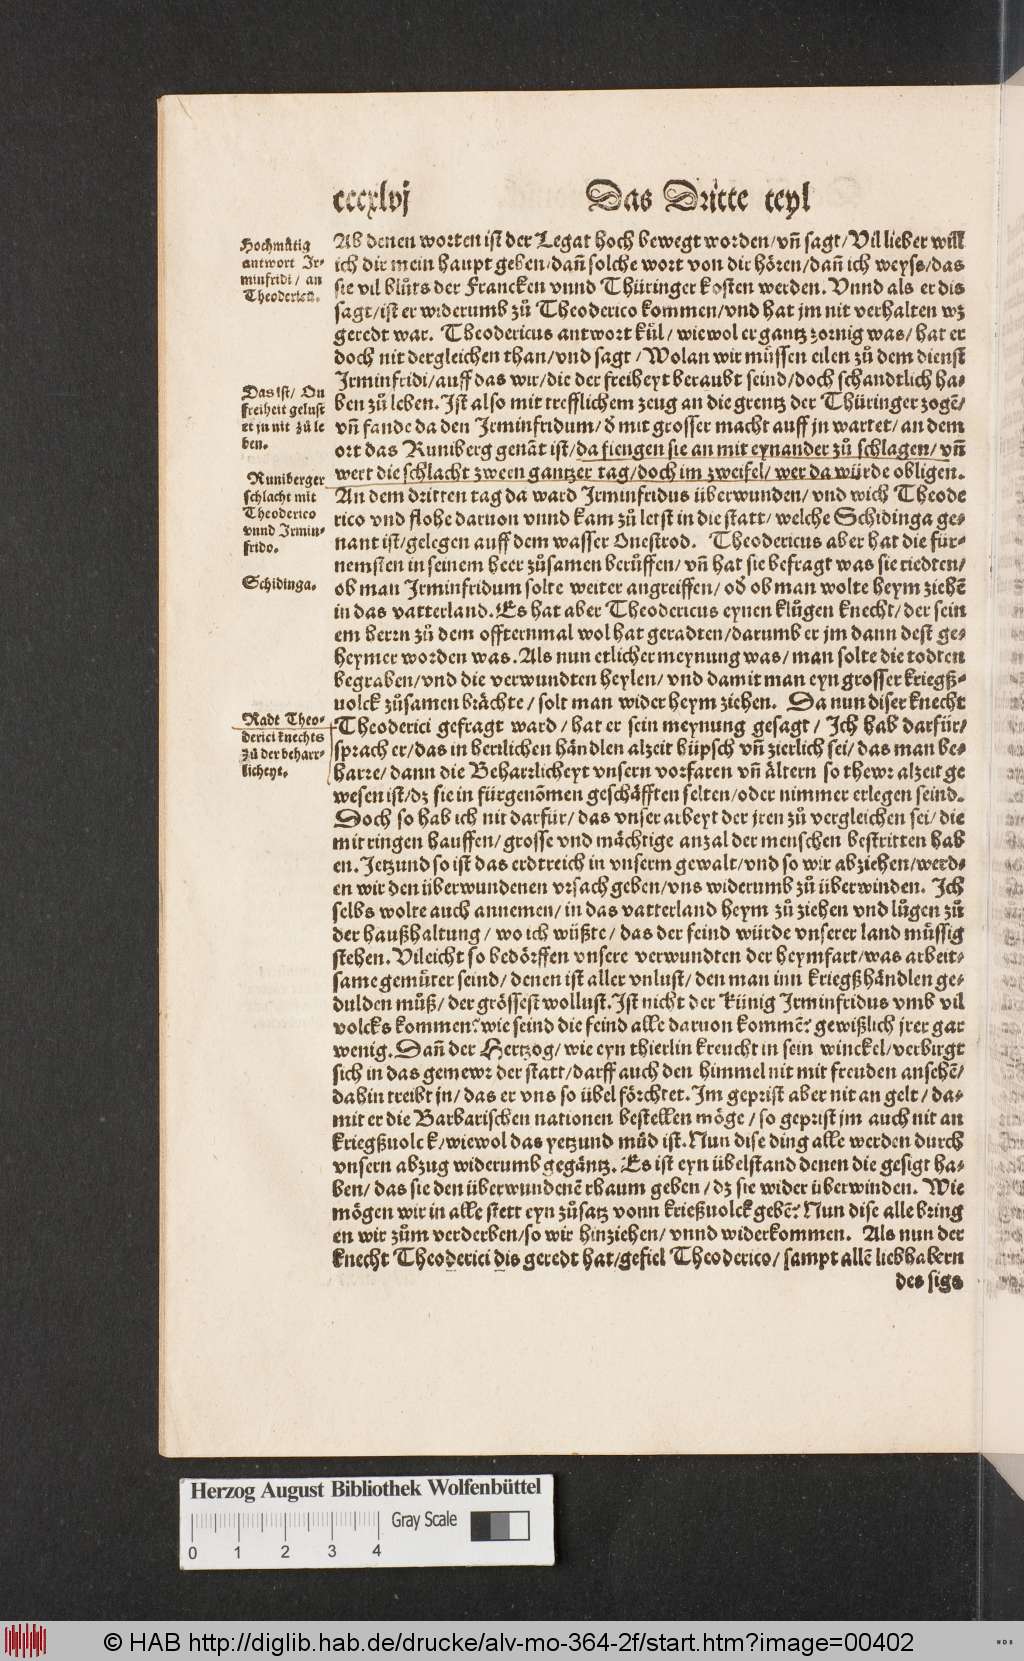 cccxlvj Das Dritte teyl
Hochmuͤtig
antwort Ir⸗
minfridi / an
Theodericū.
Das ist / On
freiheit gelust
et jn nit zuͦ le
ben.
Runiberger
schlacht mit
Theoderico
vnnd Irmin⸗
frido.
Schidinga.
Radt Theo⸗
derici knechts
zuͦ der beharr⸗
licheyt.
Ab denen worten ist der Legat hoch bewegt worden / vñ sagt / Vil lieber will
ich dir mein haupt geben / dañ solche wort von dir hoͤren / dañ ich weyss / das
sie vil bluͦts der Francken vnnd Thuͤringer kosten werden. Vnnd als er dis
sagt / ist er widerumb zuͦ Theoderico kommen / vnd hat jm nit verhalten wz
geredt war. Theodericus antwort kuͤl / wiewol er gantz zornig was / hat er
doch nit dergleichen than / vnd sagt / Wolan wir muͤssen eilen zuͦ dem dienst
Irminfridi / auff das wir / die der freiheyt beraubt seind / doch schandtlich ha⸗
ben zuͦ leben. Ist also mit trefflichem zeug an die grentz der Thuͤringer zogē /
vñ fande da den Irminfridum / d̄ mit grosser macht auff jn wartet / an dem
ort das Runiberg genāt ist / da fiengen sie an mit eynander zuͦ schlagen / vñ
wert die schlacht zween gantzer tag / doch im zweifel / wer da wuͤrde obligen.
An dem dritten tag da ward Irminfridus uͤberwunden / vnd wich Theode
rico vnd flohe daruon vnnd kam zuͦ letst in die statt / welche Schidinga ge⸗
nant ist / gelegen auff dem wasser Onestrod. Theodericus aber hat die fuͤr⸗
nemsten in seinem heer zuͦsamen beruͤffen / vñ hat sie befragt was sie riedten /
ob man Irminfridum solte weiter angreiffen / od̄ ob man wolte heym ziehē
in das vatterland. Es hat aber Theodericus eynen kluͦgen knecht / der sein
em herrn zuͦ dem offternmal wol hat geradten / darumb er jm dann dest ge⸗
heymer worden was. Als nun etlicher meynung was / man solte die todten
begraben / vnd die verwundten heylen / vnd damit man eyn grosser kriegß⸗
uolck zuͦsamen braͤchte / solt man wider heym ziehen. Da nun diser knecht
Theoderici gefragt ward / hat er sein meynung gesagt / Ich hab darfuͤr /
sprach er / das in herrlichen haͤndlen alzeit huͤpsch vñ zierlich sei / das man be⸗
harre / dann die Beharrlicheyt vnsern vorfaren vñ aͤltern so thewr alzeit ge
wesen ist / dz sie in fuͤrgenōmen geschaͤfften selten / oder nimmer erlegen seind.
Doch so hab ich nit darfuͤr / das vnser arbeyt der jren zuͦ vergleichen sei / die
mit ringen hauffen / grosse vnd maͤchtige anzal der menschen bestritten hab
en. Jetzund so ist das erdtreich in vnserm gewalt / vnd so wir abziehen / werd⸗
en wir den uͤberwundenen vrsach geben / vns widerumb zuͦ uͤberwinden. Ich
selbs wolte auch annemen / in das vatterland heym zuͦ ziehen vnd luͦgen zuͦ
der haußhaltung / wo ich wuͤßte / das der feind wuͤrde vnserer land muͤssig
stehen. Vileicht so bedoͤrffen vnsere verwundten der heymfart / was arbeit⸗
same gemuͤter seind / denen ist aller vnlust / den man inn kriegßhaͤndlen ge⸗
dulden muͦß / der groͤssest wollust. Ist nicht der Kuͤnig Irminfridus vmb vil
volcks kommen? wie seind die feind alle daruon kommē? gewißlich jrer gar
wenig. Dañ der Hertzog / wie eyn thierlin kreucht in sein winckel / verbirgt
sich in das gemewr der statt / darff auch den himmel nit mit freuden ansehē /
dahin treibt jn / das er vns so uͤbel foͤrchtet. Im geprist aber nit an gelt / da⸗
mit er die Barbarischen nationen bestellen moͤge / so geprist jm auch nit an
kriegßuolck / wiewol das yetzund muͤd ist. Nun dise ding alle werden durch
vnsern abzug widerumb gegaͤntz. Es ist eyn uͤbelstand denen die gesigt ha⸗
ben / das sie den uͤberwundenē rhaum geben / dz sie wider uͤberwinden. Wie
moͤgen wir in alle stett eyn zuͦsatz vonn krießuolck gebē? Nun dise alle bring
en wir zuͦm verderben / so wir hinziehen / vnnd widerkommen. Als nun der
knecht Theoderici dis geredt hat / gefiel Theoderico / sampt allē liebhabern
des sigs
Herzog August Bibliothek Wolfenbüttel
Gray Scale
0 1 2 3 4
© HAB http://diglib.hab.de/drucke/alv-mo-364-2f/start.htm?image=00402